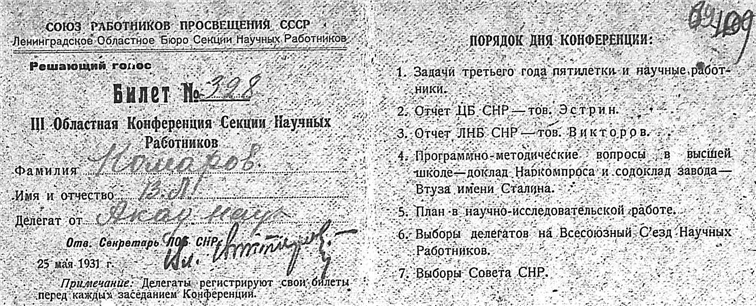 СОЮЗ РАБОТНИКОВ ПРОСВЕЩЕНИЯ СССР
Ленинградское Областное Бюро Секции Научных Работников
Решающий голос
Билет № 328
III Областная Конференция Секции Научных
Работников
Фамилия Комаров.
Имя и отчество В. Л.
Делегат от Акад наук
Отв. Секретарь ЛОБ СНР
25 мая 1931 г.
Примечание: Делегаты регистрируют свои билеты
перед каждым заседанием Конференции.
ПОРЯДОК ДНЯ КОНФЕРЕНЦИИ:
1. Задачи третьего года пятилетки и научные работ-
ники.
2. Отчет ЦБ СНР — тов. Эстрин.
3. Отчет ЛНБ СНР — тов. Викторов.
4. Программно-методические вопросы в высшей
школе—доклад Наркомпроса и содоклад завода—
Втуза имени Сталина.
5. План в научно-исследовательской работе.
6. Выборы делегатов на Всесоюзный С'езд Научных
Работников.
7. Выборы Совета СНР.